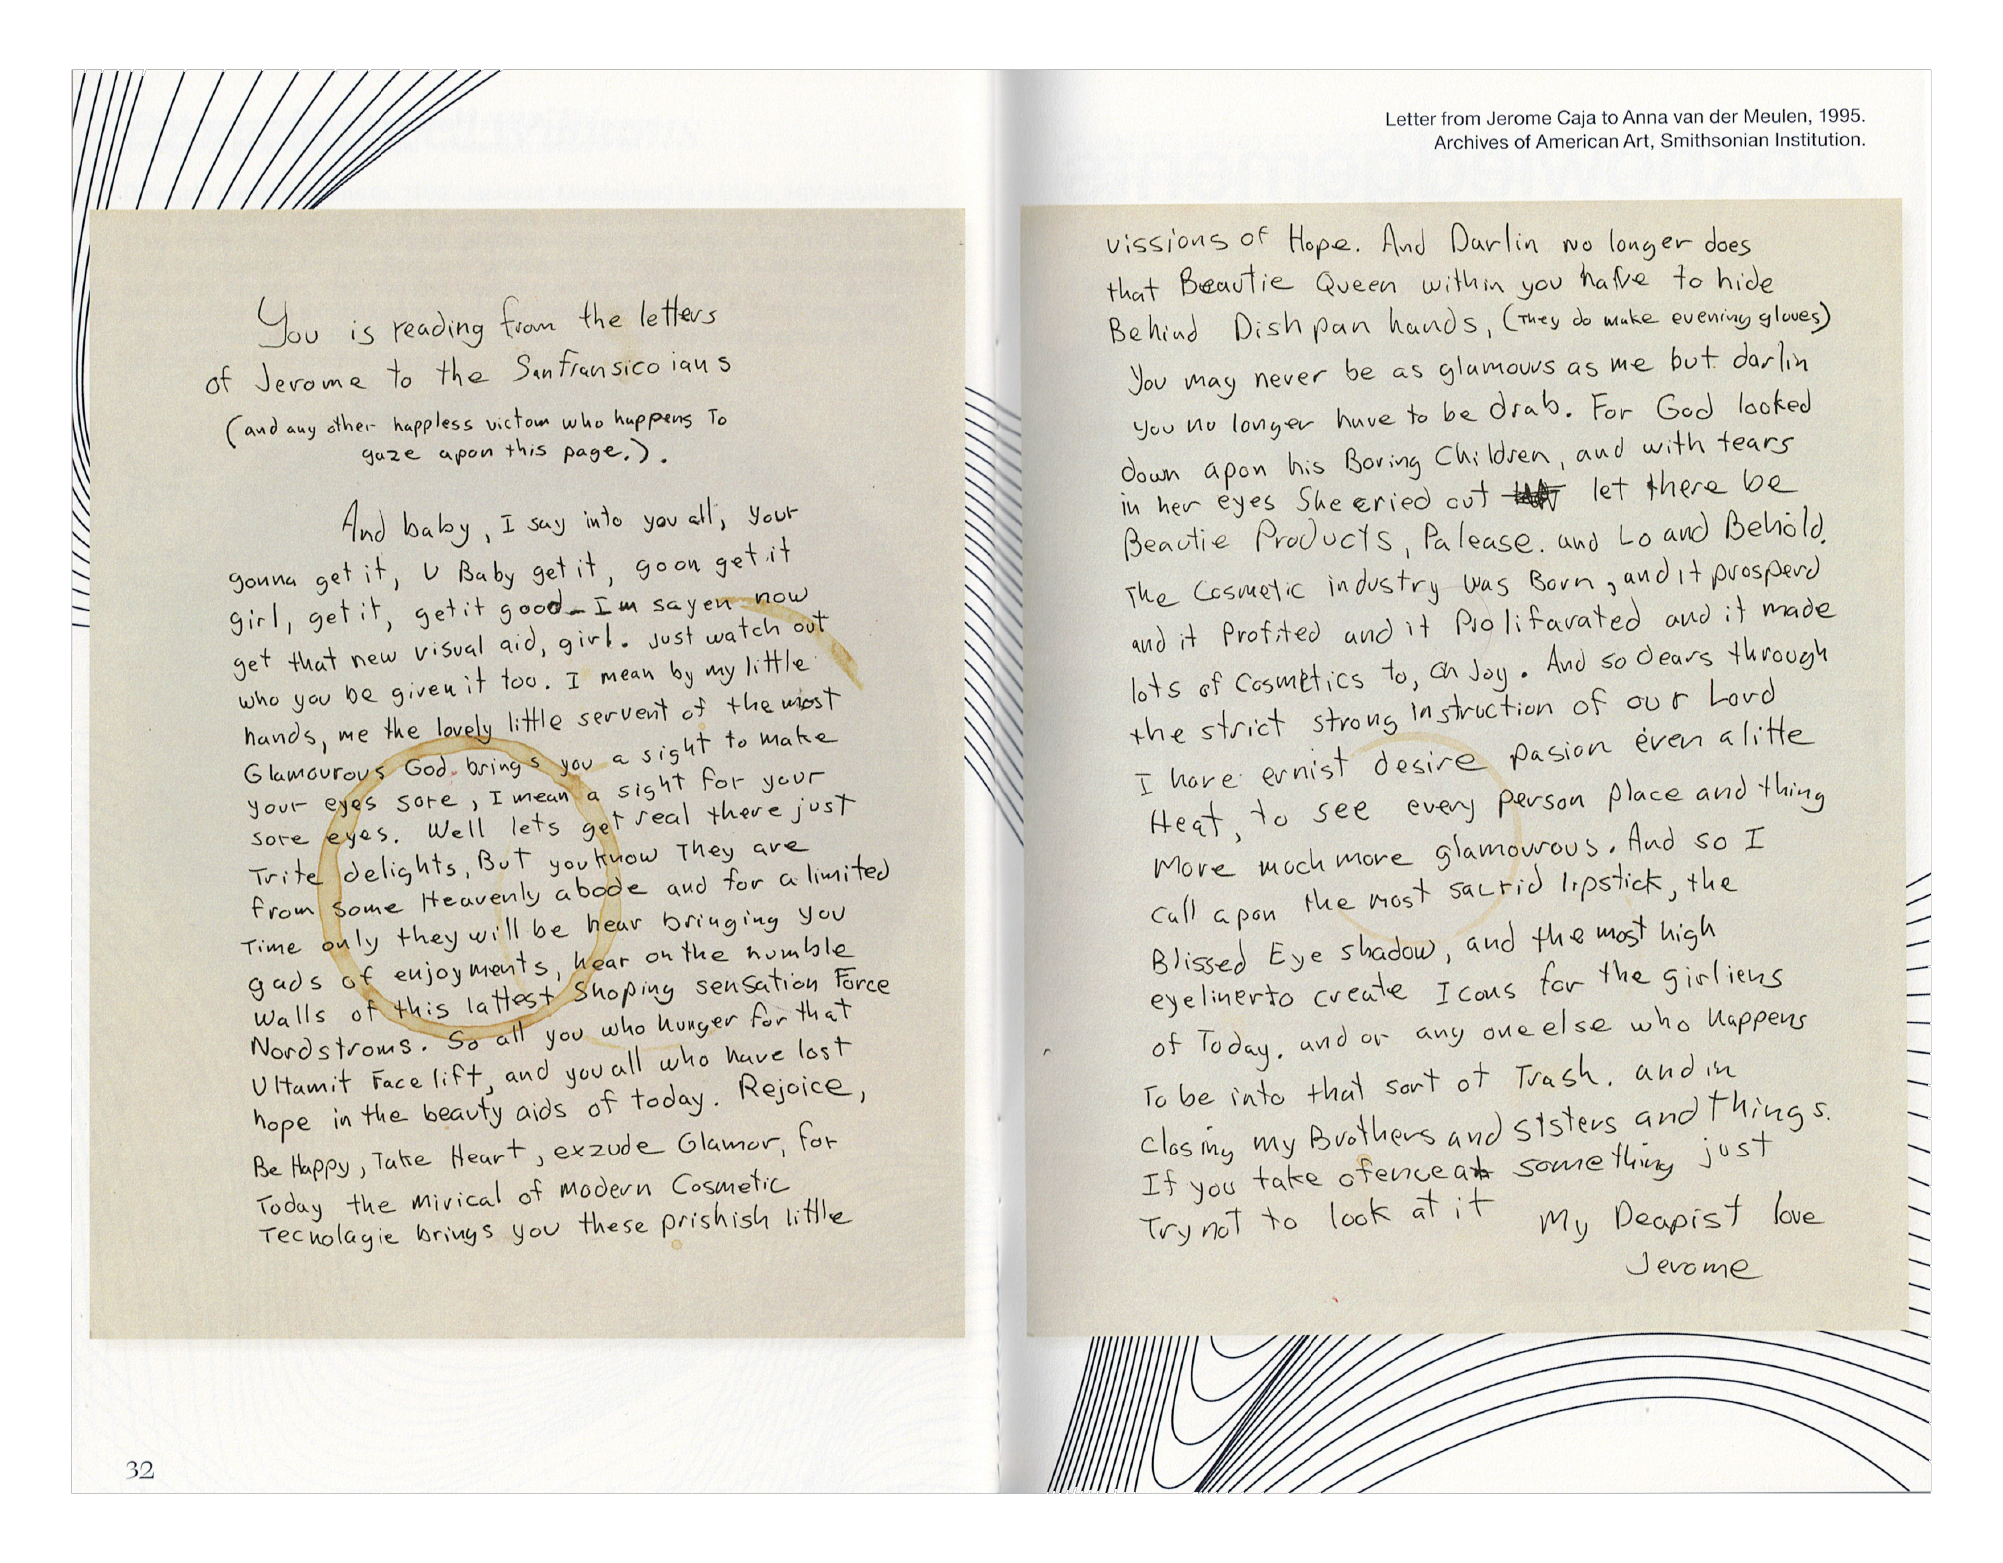 You is reading from the letters
of Jerome to the Sanfransico ians
(and any other happless victom who happens To
gaze apon this page.).
And baby, I say into you all, your
gonna get it, U Baby get it, go on get it
girl, get it, get it good_ Im sayen now
get that new visual aid, girl. Just watch out
who you be given it too. I mean by my little
hands, me the lovely little servent of the most
Glamourous God. brings you a sight to make
your eyes sore, I mean a sight for your
sore eyes. Well lets get real there just
Trite delights, But you know They are
from some Heavenly abode and for a limited
Time only they will be hear bringing you
gads of enjoyments, hear on the humble
walls of this lattest Shoping sensation Force
Nordstroms. So all you who hunger for that
Ultamit Face lift, and you all who have lost
hope in the beauty aids of today. Rejoice,
Be Happy, Take Heart, exzude Glamor, for
Today the mirical of modern Cosmetic
Tecnolagie brings you these prishish little
32
Letter from Jerome Caja to Anna van der Meulen, 1995.
Archives of American Art, Smithsonian Institution.
vissions of Hope. And Darlin no longer does
that Beautie Queen within you have to hide
Behind Dish pan hands, (They do make evening gloves)
You may never be as glamouus as me but darlin
you no longer have to be drab. For God looked
down apon his Boring Children, and with tears
in her eyes She cried out let there be
Beautie Products, Palease. and Lo and Behold.
The Cosmetic industry was Born, and it prosperd
and it Profited and it Prolifarated and it made
lots of Cosmetics to, Oh Joy. And so dears through
the strict strong instruction of our Lord
I have ernist desire pasion even a litte
Heat, to see every person place and thing
More much more glamourous. And so I
Call apon the most sacrid lipstick, the
Blissed Eye shadow, and the most high
eyeliner to create Icons for the girliens
of Today. and or any one else who happens
To be into that sort of Trash. and in
closing my Brothers and sisters and things.
If you take ofence at something just
Try not to look at it My Deapist love
Jerome